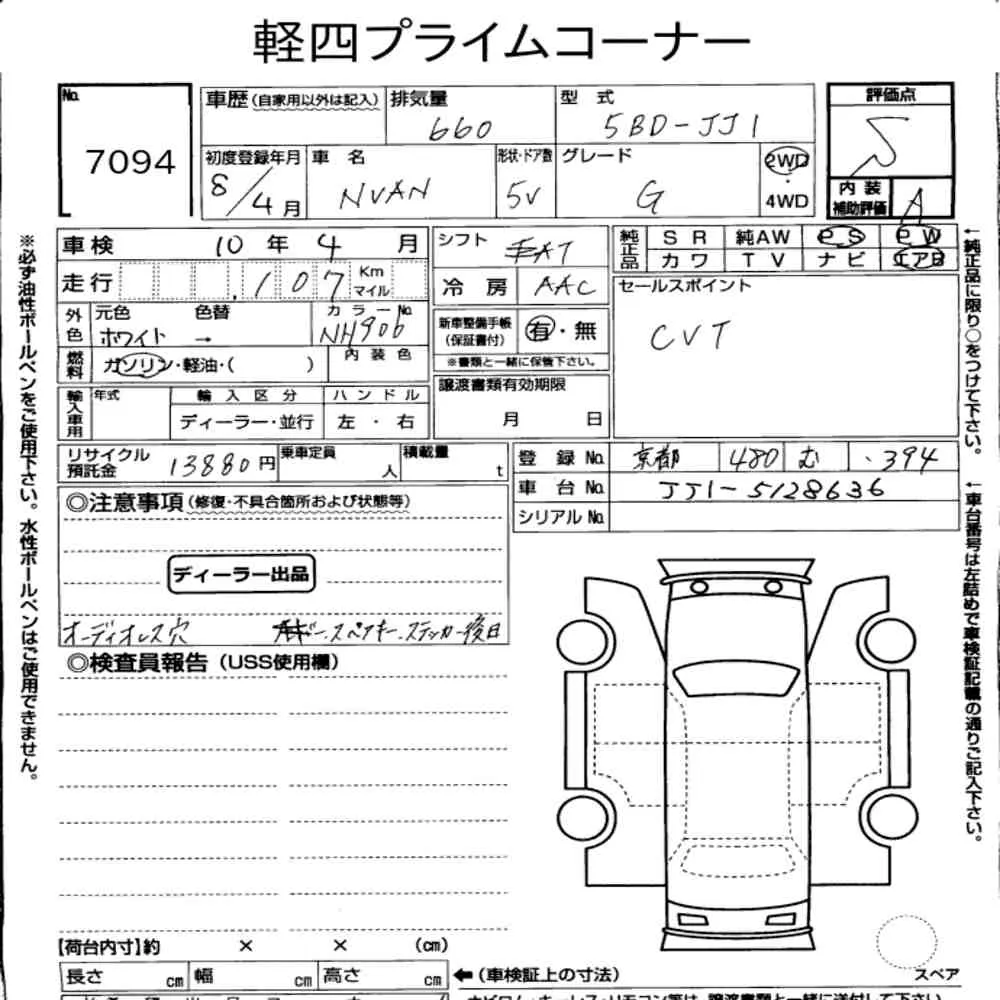 軽四プライムコーナー
No.
7094
車歴(自家用以外は記入)
排気量
660
型 式
5BD-JJ1
評価点
S
初度登録年月
8/4月
車 名
NVAN
形状・ドア数
5V
グレード
G
2WD
・
4WD
内 装
補助評価
A
車検 10 年 4 月
シフト
AT
純正品
SR 純AW PS PW
カワ TV ナビ エアB
走行 107 Km マイル
冷 房 AAC
セールスポイント
CVT
外色
元色
ホワイト
色替
→
カラーNo.
NH906
新車整備手帳
(保証書付)
有・無
※書類と一緒に保管下さい。
燃料
ガソリン・軽油・( )
内 装 色
譲渡書類有効期限
月 日
輸入車用
年式
輸 入 区 分
ディーラー・並行
ハ ン ド ル
左 ・ 右
リサイクル
預託金
13880円
乗車定員
人
積載量
t
登 録 No. 京都 480 む ・394
車 台 No. JJ1-5128636
シリアルNo.
◎注意事項(修復・不具合箇所および状態等)
ディーラー出品
オーディオレス穴
スペアキー.ステッカー後日
◎検査員報告(USS使用欄)
【荷台内寸】約 × × (cm)
長さ cm 幅 cm 高さ cm
←(車検証上の寸法)
スペア
※必ず油性ボールペンをご使用下さい。水性ボールペンはご使用できません。
←純正品に限り○をつけて下さい。
←車台番号は左詰めで車検証記載の通りご記入下さい。